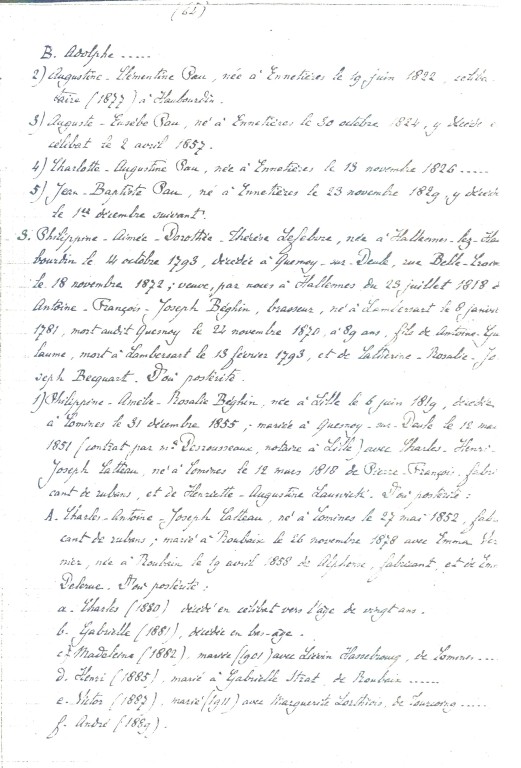 (65)
B. Adolphe .....
2) Augustine-Clémentine Pau, née à Ennetières le 19 juin 1822, céliba-
taire (1877) à Haubourdin.
3) Auguste-Eusèbe Pau, né à Ennetières le 30 octobre 1824, y décédé
célibat. le 2 avril 1857.
4) Charlotte-Augustine Pau, née à Ennetières le 13 novembre 1826 .....
5) Jean-Baptiste Pau, né à Ennetières le 23 novembre 1829, y décédé
le 1er décembre suivant.
3. Philippine-Aimée-Dorothée-Thérèse Lefebvre, née à Hallennes-lez-Hau
bourdin le 4 octobre 1793, décédée à Quesnoy-sur-Deule, rue Belle-Croix
le 18 novembre 1872; veuve, par noces à Hallennes du 23 juillet 1818 d'
Antoine-François-Joseph Béghin, brasseur, né à Lambersart le 8 janvier
1781, mort audit Quesnoy le 24 novembre 1870, à 89 ans, fils de Antoine-Gu
laume, mort à Lambersart le 13 février 1793, et de Catherine-Rosalie-Jo
seph Becquart. D'où postérité.
1) Philippine-Amélie-Rosalie Béghin, née à Lille le 6 juin 1819, décédée
à Comines le 31 décembre 1855; mariée à Quesnoy-sur-Deule le 12 mai
1851 (contrat par me Desrousseaux, notaire à Lille) avec Charles-Henri-
Joseph Catteau, né à Comines le 12 mars 1818 de Pierre-François, fabri
cant de rubans, et de Henriette-Augustine Lauwick. D'où postérité:
A. Charles-Antoine-Joseph Catteau, né à Comines le 27 mai 1852, fabri-
cant de rubans; marié à Roubaix le 26 novembre 1878 avec Emma Ver
nier, née à Roubaix le 19 avril 1858 de Alphonse, fabricant, et de Em
Delerue. D'où postérité:
a. Charles (1880) décédé en célibat vers l'âge de vingt ans.
b. Gabrielle (1881), décédée en bas-âge.
c. Madeleine (1882), mariée (1901) avec Liévin Hassebroucq, de Comines ....
d. Henri (1885), marié à Gabrielle Strat, de Roubaix ......
e. Victor (1887), marié (1911) avec Marguerite Lorthiois, de Tourcoing .....
f. André (1889).